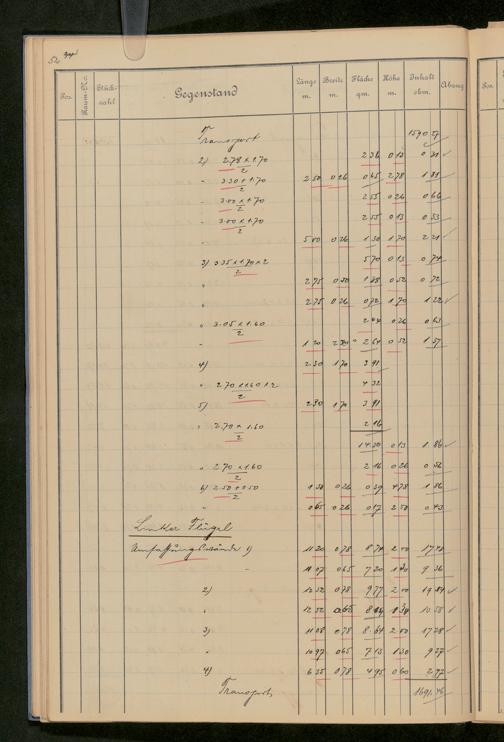 52
Pos. Raum-No. Stück-zahl Gegenstand Länge m. Breite m. Fläche qm. Höhe m. Inhalt cbm. Abzug Pos.
Transport 1570 27
2) 2.78 x 1.70 / 2 2 36 0 13 0 31
" 3.30 + 1.70 / 2 2 50 0 26 0 65 2 78 1 81
" 3.00 x 1.70 / 2 2 55 0 26 0 66
" 3.00 x 1.70 / 2 2 55 0 13 0 33
" 5 00 0 26 1 30 1 70 2 21
3) 3.35 x 1.70 x 2 / 2 5 70 0 13 0 74
" 2 75 0 52 0 72
" 2 75 0 26 0 72 1 70 1 22
" 3.05 x 1.60 / 2 2 44 0 26 0 63
" 1 20 2 20 2 64 0 52 1 37
4) 2 30 1 70 3 91
" 2.70 x 1.60 x 2 / 2 4 32
5) 2 30 1 70 3 91
" 2.70 x 1.60 / 2 2 16
14 30 0 13 1 86
" 2.70 x 1.60 / 2 2 16 0 26 0 56
6) 2.50 + 0.50 / 2 1 50 0 26 0 39 4 78 1 86
" 0 65 0 26 0 17 2 50 0 43
Linker Flügel
Umfassungswände 1) 11 20 0 78 8 74 2 00 17 48
" 11 07 0 65 7 20 1 30 9 36
2) 12 52 0 78 9 77 2 00 19 54
" 12 52 0 65 8 14 1 30 10 58
3) 11 08 0 78 8 64 2 00 17 28
" 10 97 0 65 7 13 1 30 9 27
4) 6 35 0 78 4 95 0 60 2 97
Transport 1691 76